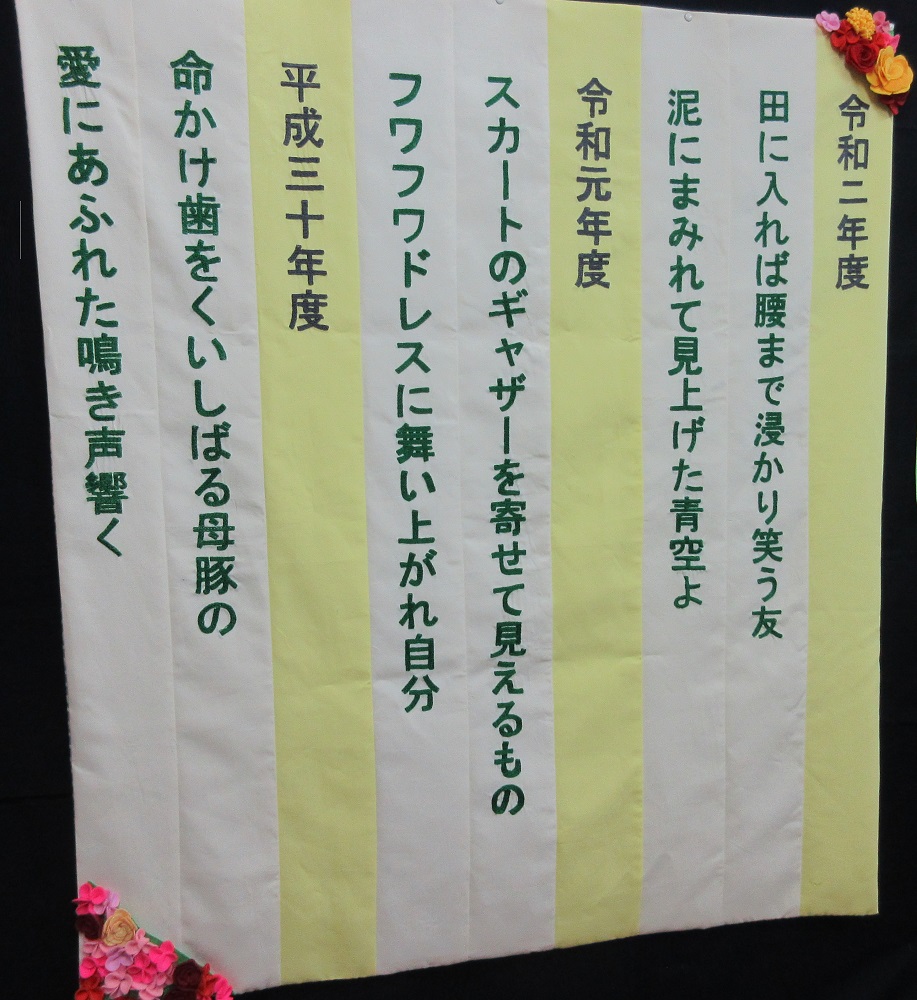 令和二年度
田に入れば腰まで浸かり笑う友
泥にまみれて見上げた青空よ
令和元年度
スカートのギャザーを寄せて見えるもの
フワフワドレスに舞い上がれ自分
平成三十年度
命かけ歯をくいしばる母豚の
愛にあふれた鳴き声響く